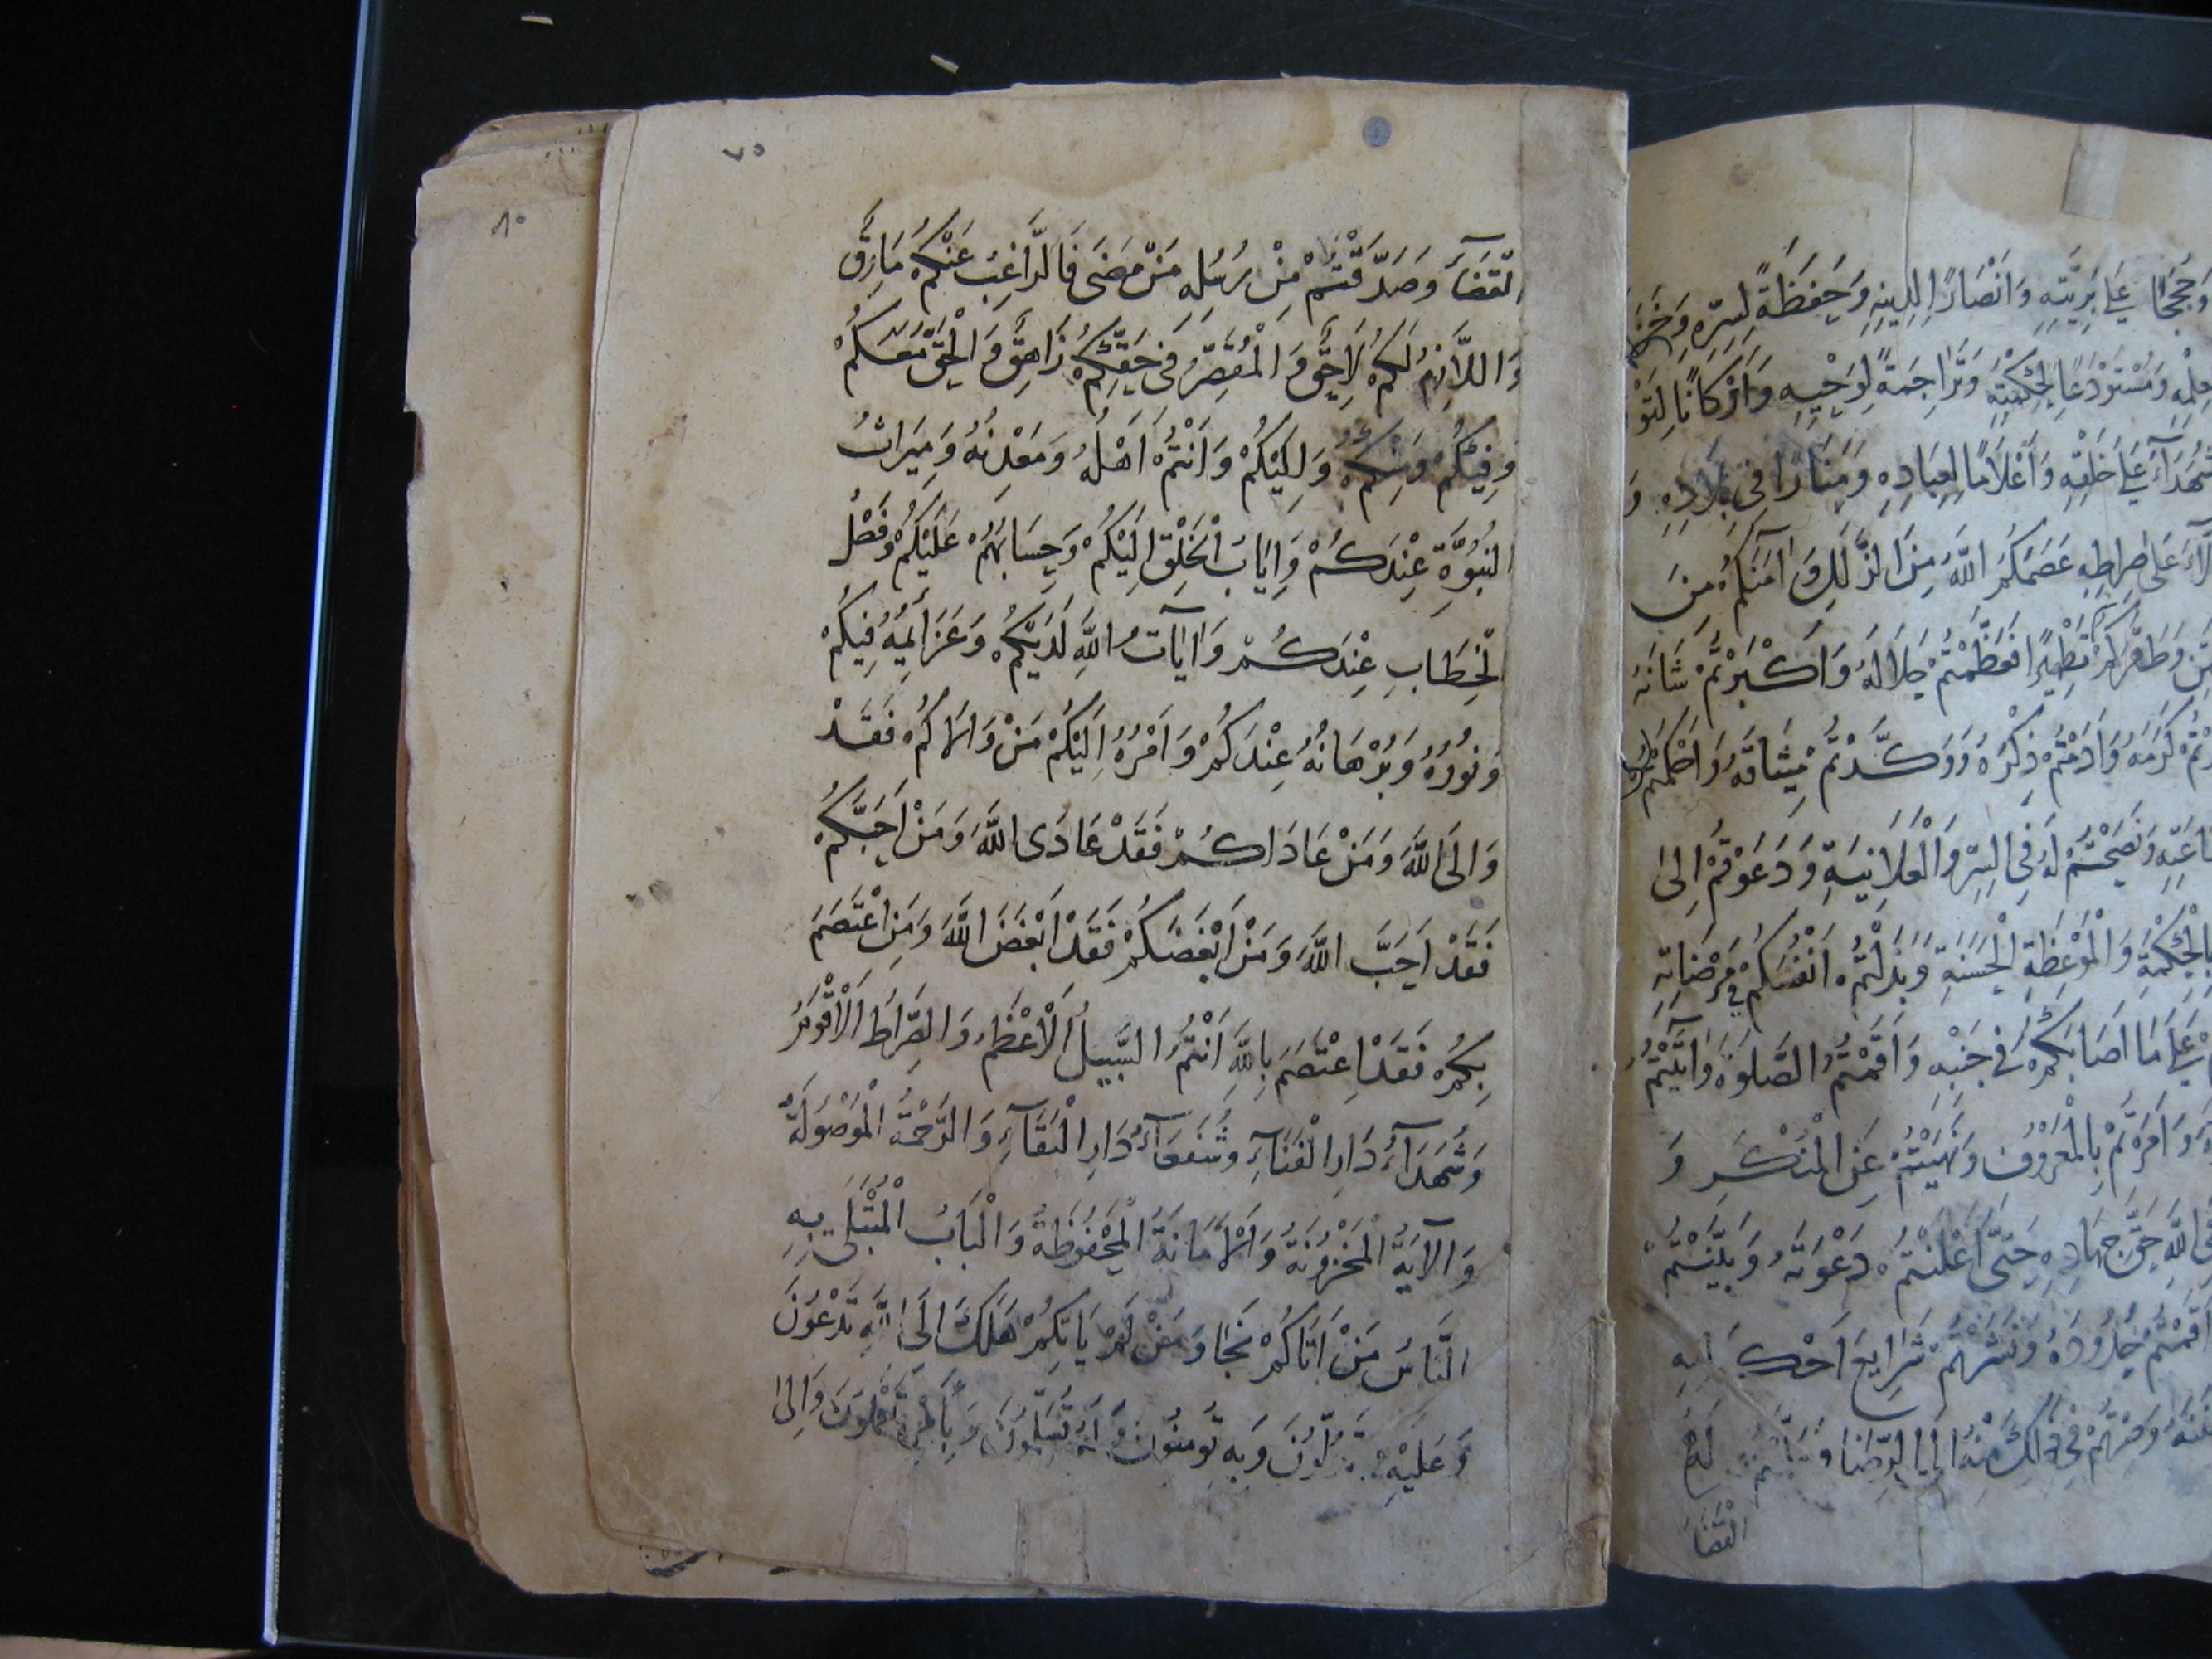 وَحُجَجًا عَلَى بَرِيَّتِهِ وَاَنْصَارًا لِدِينِهِ وَحَفَظَةً لِسِرِّهِ وَ
عِلْمِهِ وَمُسْتَوْدَعًا لِحِكْمَتِهِ وَتَرَاجِمَةً لِوَحْيِهِ وَاَرْكَانًا لِتَوْ
شُهَدَآءَ عَلَى خَلْقِهِ وَاَعْلَامًا لِعِبَادِهِ وَمَنَارًا فِي بِلَادِهِ وَ
عَلَى صِرَاطِهِ عَصَمَكُمُ اللَّهُ مِنَ الزَّلَلِ وَ آمَنَكُمْ مِنَ
وَطَهَّرَكُمْ تَطْهِيرًا فَعَظَّمْتُمْ جَلَالَهُ وَاَكْبَرْتُمْ شَانَهُ
كَرَمَهُ وَاَدَمْتُمْ ذِكْرَهُ وَوَكَّدْتُمْ مِيثَاقَهُ وَاَحْكَمْتُمْ
وَنَصَحْتُمْ لَهُ فِي السِّرِّ وَالْعَلَانِيَةِ وَدَعَوْتُمْ اِلَى
بِالْحِكْمَةِ وَالْمَوْعِظَةِ الْحَسَنَةِ وَبَذَلْتُمْ اَنْفُسَكُمْ فِي مَرْضَاتِهِ
عَلَى مَا اَصَابَكُمْ فِي جَنْبِهِ وَاَقَمْتُمُ الصَّلَوةَ وَاٰتَيْتُمُ
وَاَمَرْتُمْ بِالْمَعْرُوفِ وَنَهَيْتُمْ عَنِ الْمُنْكَرِ وَ
اللَّهِ حَقَّ جِهَادِهِ حَتَّى اَعْلَنْتُمْ دَعْوَتَهُ وَبَيَّنْتُمْ
اَقَمْتُمْ حُدُودَهُ وَنَشَرْتُمْ شَرَايِعَ اَحْكَامِهِ
وَصِرْتُمْ فِي ذَلِكَ مِنْهُ اِلَى الرِّضَا وَ لَهُ
الْقَضَآ
٧٥
٨٠
الْقَضَآءَ وَصَدَّقْتُمْ مِنْ رُسُلِهِ مَنْ مَضَى فَالرَّاغِبُ عَنْكُمْ مَارِقٌ
وَاللَّازِمُ لَكُمْ لَاحِقٌ وَالْمُقَصِّرُ فِي حَقِّكُمْ زَاهِقٌ وَالْحَقُّ مَعَكُمْ
وَفِيكُمْ وَمِنْكُمْ وَاِلَيْكُمْ وَاَنْتُمْ اَهْلُهُ وَمَعْدِنُهُ وَمِيرَاثُ
النُّبُوَّةِ عِنْدَكُمْ وَاِيَابُ الْخَلْقِ اِلَيْكُمْ وَحِسَابُهُمْ عَلَيْكُمْ وَفَصْلُ
الْخِطَابِ عِنْدَكُمْ وَآيَاتُ اللَّهِ لَدَيْكُمْ وَعَزَائِمُهُ فِيكُمْ
وَنُورُهُ وَبُرْهَانُهُ عِنْدَكُمْ وَاَمْرُهُ اِلَيْكُمْ مَنْ وَالَاكُمْ فَقَدْ
وَالَى اللَّهَ وَمَنْ عَادَاكُمْ فَقَدْ عَادَى اللَّهَ وَمَنْ اَحَبَّكُمْ
فَقَدْ اَحَبَّ اللَّهَ وَمَنْ اَبْغَضَكُمْ فَقَدْ اَبْغَضَ اللَّهَ وَمَنِ اعْتَصَمَ
بِكُمْ فَقَدْ اعْتَصَمَ بِاللَّهِ اَنْتُمُ السَّبِيلُ الْاَعْظَمُ وَالصِّرَاطُ الْاَقْوَمُ
وَشُهَدَآءُ دَارِ الْفَنَآءِ وَشُفَعَآءُ دَارِ الْبَقَآءِ وَالرَّحْمَةُ الْمَوْصُولَةُ
وَالْآيَةُ الْمَخْزُونَةُ وَالْاَمَانَةُ الْمَحْفُوظَةُ وَالْبَابُ الْمُبْتَلَى بِهِ
النَّاسُ مَنْ اَتَاكُمْ نَجَا وَمَنْ لَمْ يَاتِكُمْ هَلَكَ اِلَى اللَّهِ تَدْعُونَ
وَعَلَيْهِ تَدُلُّونَ وَبِهِ تُومِنُونَ وَلَهُ تُسَلِّمُونَ وَبِاَمْرِهِ تَعْمَلُونَ وَاِلَى